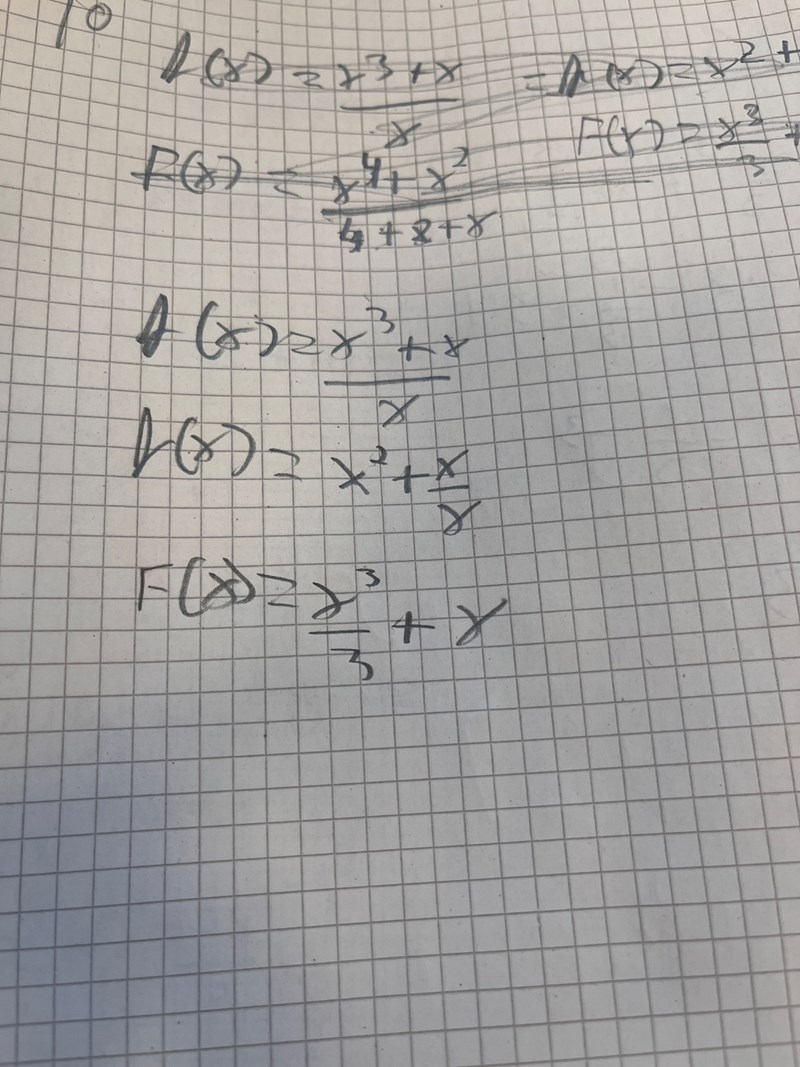 10
f(x) = x³ + x / x = f(x) = x² +
F(x) = x⁴ + x² / 4 + 2 + x F(x) = x³ / 3 +
f(x) = x³ + x / x
f(x) = x² + x / x
F(x) = x³ / 3 + x